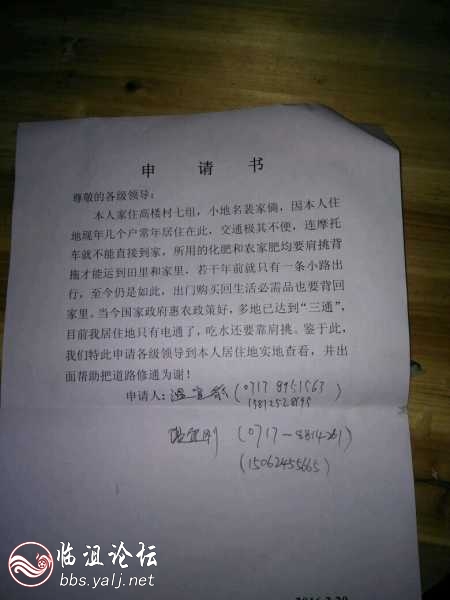 申请书
尊敬的各级领导：
本人家住高楼村七组，小地名裴家倘，因本人住
地现年几个户常年居住在此，交通极其不便，连摩托
车就不能直接到家，所用的化肥和农家肥均要肩挑背
拖才能运到田里和家里，若干年前就只有一条小路出
行，至今仍是如此，出门购买回生活必需品也要背回
家里。当今国家政府惠农政策好，多地已达到“三通”，
目前我居住地只有电通了，吃水还要靠肩挑。鉴于此，
我们特此申请各级领导到本人居住地实地查看，并出
面帮助把道路修通为谢！
申请人：温宜 (0717 8951563
(0717-8814261)
(15062455665)
临沮论坛
bbs.yalj.net